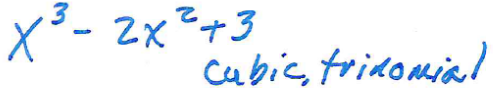 x³ - 2x² + 3
cubic, trinomial